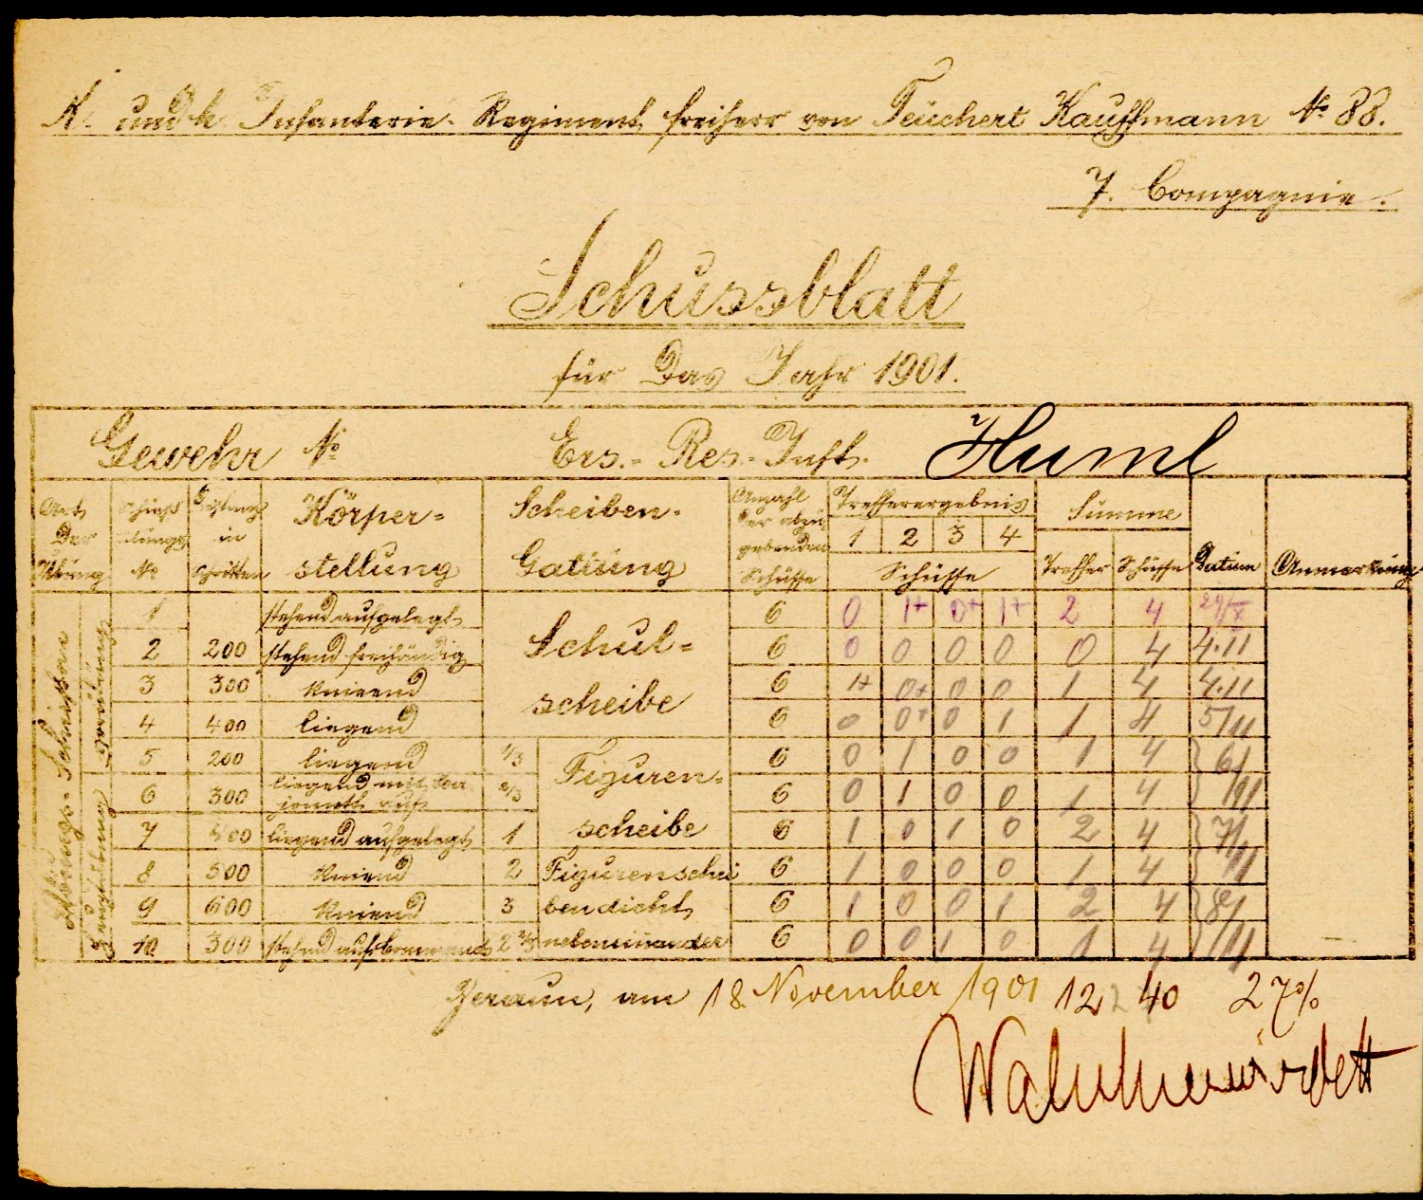 K. und k. Infanterie-Regiment Freiherr von Teuchert Kauffmann № 88.
7. Compagnie.
Schussblatt
für das Jahr 1901.
Gewehr № Ers.-Res.-Inft. Huml
Art der Übung
Schieß übungs №
Distanz in Schritten
Körper- stellung
Scheiben- Gattung
Anzahl der abzu gebenden Schüsse
Trefferergebnis
1 2 3 4
Schüsse
Summe
Treffer Schüsse
Datum
Anmerkung
1 stehend aufgelegt 6 0 1+ 0+ 1+ 2 4
2 200 stehend freihändig 6 0 0 0 0 0 4 4.11
3 300 knieend 6 1+ 0+ 0 0 1 4 4.11
4 400 liegend 6 0 0+ 0 1 1 4 5/11
Schul-
scheibe
5 200 liegend 1/3 6 0 1 0 0 1 4 6/
6 300 liegend mit 2/3 6 0 1 0 0 1 4 11
7 500 liegend aufgelegt 1 6 1 0 1 0 2 4 7/
Figuren-
scheibe
8 500 kniend 2 Figurenschei 6 1 0 0 0 1 4 11
9 600 kniend 3 ben dicht 6 1 0 0 1 2 4 8/
10 300 stehend auf Commando 2 2/3 nebeneinander 6 0 0 1 0 1 4 11
am 18 November 1901 12 40 27%